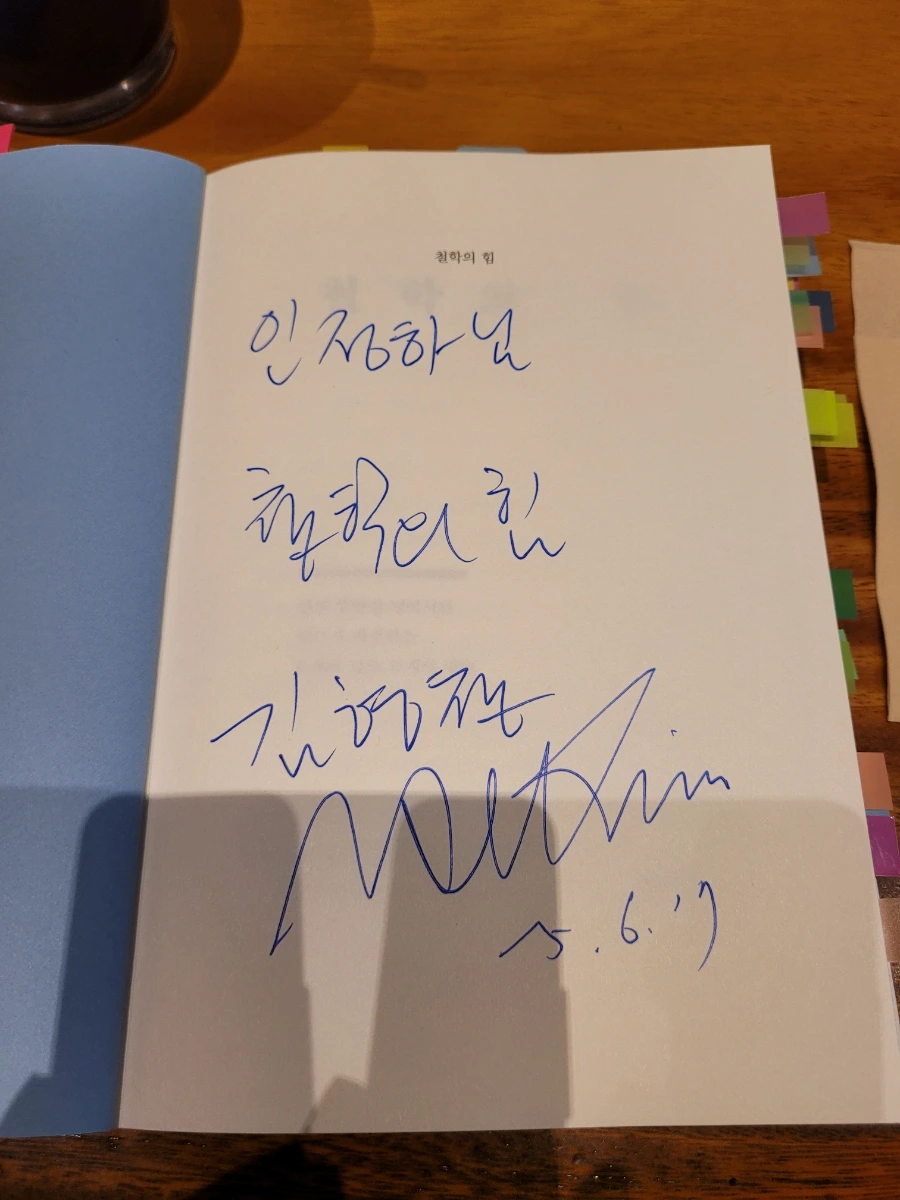 철학의 힘
인정하님
철학의 힘
김형철
5.6.'17